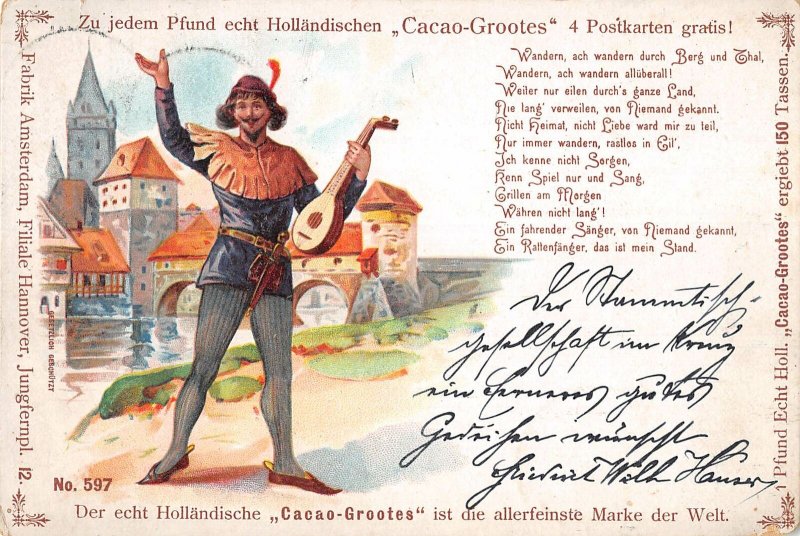 Zu jedem Pfund echt Holländischen „Cacao-Grootes" 4 Postkarten gratis!
Wandern, ach wandern durch Berg und Thal,
Wandern, ach wandern allüberall!
Weiter nur eilen durch's ganze Land,
Nie lang' verweilen, von Niemand gekannt.
Nicht Heimat, nicht Liebe ward mir zu teil,
Nur immer wandern, rastlos in Eil',
Ich kenne nicht Sorgen,
Kenn Spiel nur und Sang,
Grillen am Morgen
Währen nicht lang'!
Ein fahrender Sänger, von Niemand gekannt,
Ein Rattenfänger, das ist mein Stand.
Der Stammtisch-
gesellschaft im Kreuz
ein ferneres gutes
Gedeihen wünscht
Friedrich Wilh Hauser
Fabrik Amsterdam, Filiale Hannover, Jungfernpl. 12.
GESETZLICH GESCHÜTZT
1 Pfund Echt Holl. „Cacao-Grootes" ergiebt 150 Tassen.
No. 597
Der echt Holländische „Cacao-Grootes" ist die allerfeinste Marke der Welt.